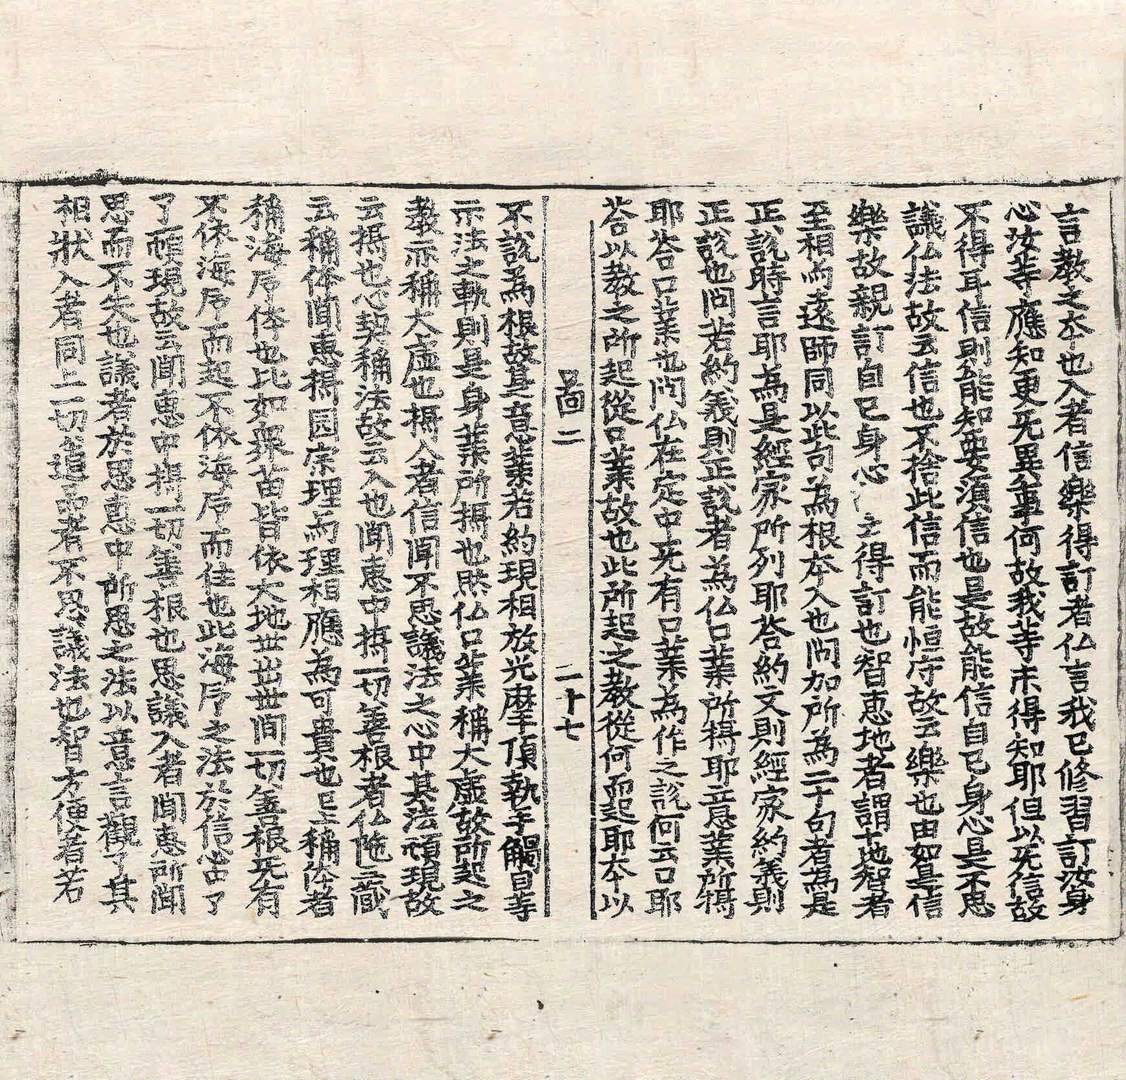 言教之本也入者信樂得訂者仏言我已修習訂汝身
心汝等應知更旡異事何故我等未得知耶但以旡信故
不得耳信則能知要湏信也是故能信自己身心是不思
議仏法故云信也不捨此信而能恒守故云樂也由如是信
樂故親訂自己身心之得訂也智恵地者謂十地智者
至相而遠師同以此句為根本入也問加所為二十句者為是
正說時言耶為是經家所列耶荅約文則經家約義則
正說也問若約義則正說者為仏口業所得耶意業所得
耶荅口業也問仏在定中旡有口業為作之說何云口耶
荅以教之所起從口業故也此所起之教從何而起耶本以
啚二
二十七
不說為根故是意業若約現相放光摩頂執手觸目等
示法之軌則是身業所攝也然仏口業稱大虛故所起之
教亦稱大虛也攝入者信聞不思議法之心中其法頓現故
云攝也心契稱法故云入也聞恵中攝一切善根者仏陁三藏
云稱体聞恵攝圎宗理而理相應為可貴也已上稱体者
稱海印体也比如眾苗皆依大地世出世間一切善根旡有
不依海印而起不依海印而住也此海印之法於信心中了
了頓現故云聞恵中攝一切善根也思議入者聞恵所聞
思而不失也議者於思恵中所思之法以意言觀了其
相狀入者同上一切道而者不思議法也智方便者若